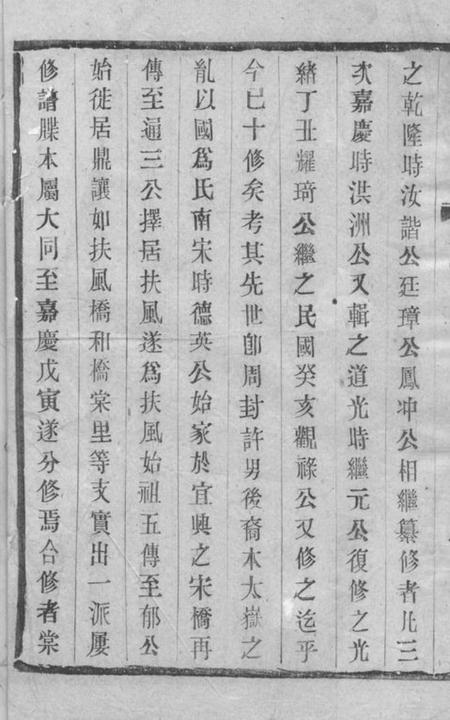 之乾隆時汝諧公廷璋公鳳冲公相繼纂修者凡三
次嘉慶時洪洲公又輯之道光時繼元公復修之光
緒丁丑耀琦公繼之民國癸亥觀祿公又修之迄乎
今已十修矣考其先世卽周封許男後裔本太嶽之
亂以國爲氏南宋時德英公始家於宜興之宋橋再
傳至通三公擇居扶風遂爲扶風始祖五傳至郁公
始徙居鼎讓如扶風橋和橋棠里等支實出一派屢
修譜牒本屬大同至嘉慶戊寅遂分修焉合修者棠